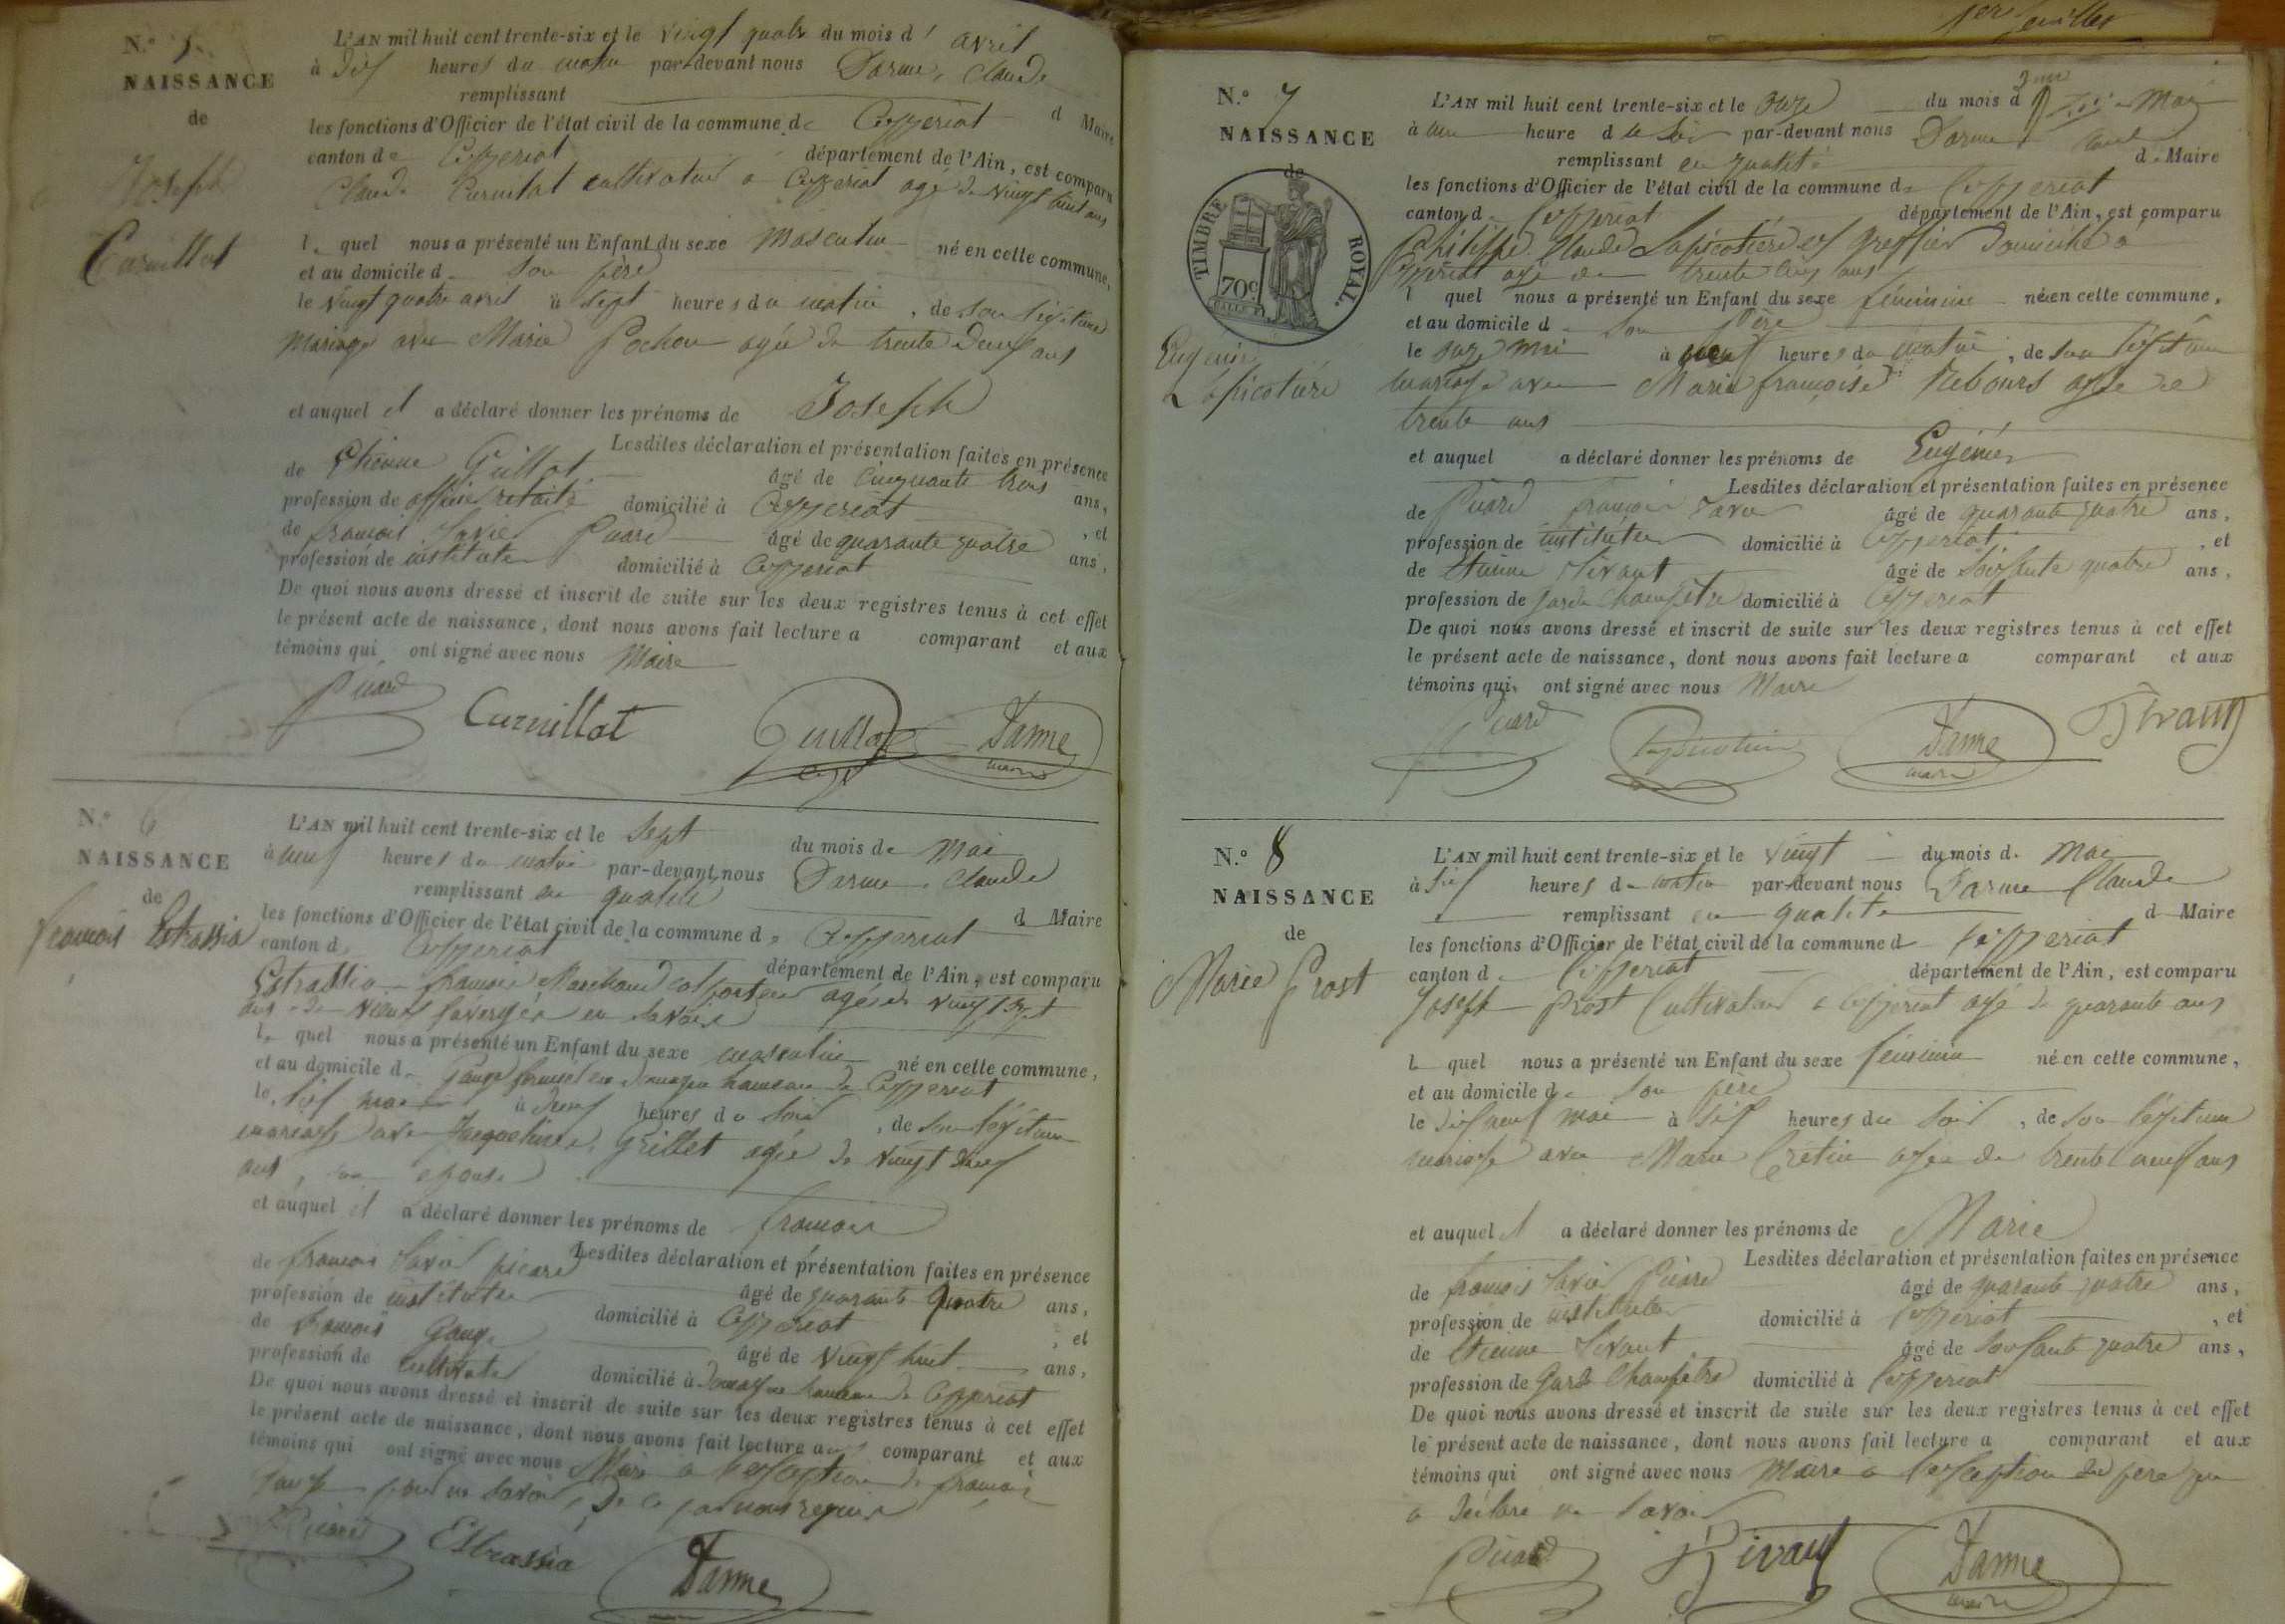 N.° 5
NAISSANCE
de
Joseph
Curnillot
L'AN mil huit cent trente-six et le vingt quatre du mois d' avril
à dix heures du matin par-devant nous Darme, Claude
remplissant d Maire
les fonctions d'Officier de l'état civil de la commune de Ceyzeriat
canton de Ceyzeriat département de l'Ain, est comparu
Claude Curnillat cultivateur a Ceyzeriat agé de vingt huit ans
le quel nous a présenté un Enfant du sexe masculin né en cette commune,
et au domicile de son père
le vingt quatre avril à sept heures du matin, de son légitime
mariage avec Marie Pochon agée de trente deux ans
et auquel il a déclaré donner les prénoms de Joseph
Lesdites déclaration et présentation faites en présence
de Etienne Guillot âgé de cinquante trois ans,
profession de officier retraité domicilié à Ceyzeriat, et
de francois Xavier Picard âgé de quarante quatre ans,
profession de instituteur domicilié à Ceyzeriat
De quoi nous avons dressé et inscrit de suite sur les deux registres tenus à cet effet
le présent acte de naissance, dont nous avons fait lecture a comparant et aux
témoins qui ont signé avec nous Maire
Picard Curnillot Guillot Darme
maire
N.° 6
NAISSANCE
de
francois Estrassia
L'AN mil huit cent trente-six et le sept du mois de Mai
à neuf heures du matin par-devant nous Darme Claude
remplissant en qualité d Maire
les fonctions d'Officier de l'état civil de la commune de Ceyzeriat
canton de Ceyzeriat département de l'Ain, est comparu
Estrassia francois Marchand colporteur agé de vingt sept
ans en savoie
le quel nous a présenté un Enfant du sexe masculin né en cette commune,
et au domicile de hameau de Ceyzeriat
le six mai à heures du soir, de son légitime
mariage avec Jacqueline Grillet agée de vingt
ans, son epouse
et auquel il a déclaré donner les prénoms de francois
Lesdites déclaration et présentation faites en présence
de francois Xavier picard âgé de quarante quatre ans,
profession de instituteur domicilié à Ceyzeriat, et
de francois âgé de vingt huit ans,
profession de cultivateur domicilié à hameau de Ceyzeriat
De quoi nous avons dressé et inscrit de suite sur les deux registres tenus à cet effet
le présent acte de naissance, dont nous avons fait lecture aux comparant et aux
témoins qui ont signé avec nous Maire a l'exception de francois
savoir, de ce par nous requis
Picard Estrassia Darme
1er feuillet
N.° 7
NAISSANCE
de
TIMBRE ROYAL.
70c
Eugénie
Lapicotière
L'AN mil huit cent trente-six et le onze du mois de Mai
à une heure du soir par-devant nous Darme Claude
remplissant en qualité de Maire
les fonctions d'Officier de l'état civil de la commune de Ceyzeriat
canton de Ceyzeriat département de l'Ain, est comparu
Philippe Claude Lapicotière greffier domicilié à
Ceyzeriat agé de trente cinq ans
l quel nous a présenté un Enfant du sexe féminine né en cette commune,
et au domicile de son père
le onze mai à neuf heures du matin, de son légitime
mariage avec Marie françoise Rebours agée de
trente ans
et auquel a déclaré donner les prénoms de Eugénie
Lesdites déclaration et présentation faites en présence
de Picard françois Xavier âgé de quarante quatre ans,
profession de instituteur domicilié à Ceyzeriat, et
de Etienne Sivant âgé de soixante quatre ans,
profession de garde champêtre domicilié à Ceyzeriat
De quoi nous avons dressé et inscrit de suite sur les deux registres tenus à cet effet
le présent acte de naissance, dont nous avons fait lecture a comparant et aux
témoins qui ont signé avec nous Maire
Picard Lapicotière Darme
maire
N.° 8
NAISSANCE
de
Marie Prost
L'AN mil huit cent trente-six et le vingt du mois de Mai
à six heures du matin par-devant nous Darme Claude
remplissant en qualité d Maire
les fonctions d'Officier de l'état civil de la commune de Ceyzeriat
canton de Ceyzeriat département de l'Ain, est comparu
Joseph Prost Cultivateur a Ceyzeriat agé de quarante ans
le quel nous a présenté un Enfant du sexe féminin né en cette commune,
et au domicile de son père
le dix neuf mai à six heures du soir, de son légitime
mariage avec Marie Crétin agée de trente neuf ans
et auquel il a déclaré donner les prénoms de Marie
Lesdites déclaration et présentation faites en présence
de francois Xavier Picard âgé de quarante quatre ans,
profession de instituteur domicilié à Ceyzeriat, et
de Etienne Sivant âgé de soixante quatre ans,
profession de Garde Champetre domicilié à Ceyzeriat
De quoi nous avons dressé et inscrit de suite sur les deux registres tenus à cet effet
le présent acte de naissance, dont nous avons fait lecture a comparant et aux
témoins qui ont signé avec nous Maire a l'exception du pere qui
a declare ne savoir
Picard Darme
maire